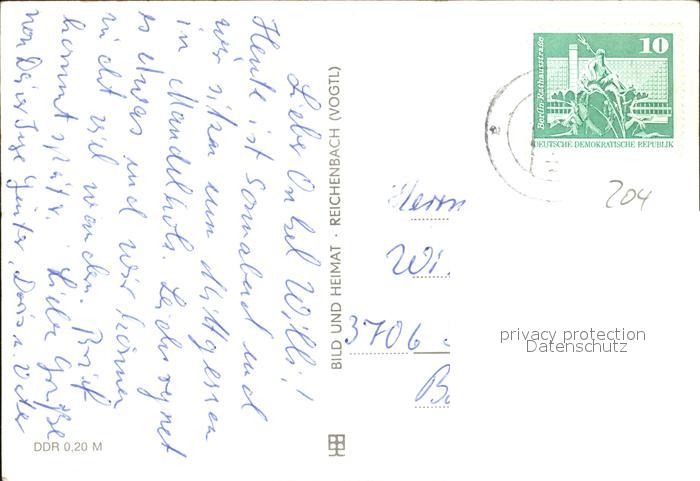 Liebe Onkel Willi!
Heute ist Sonnabend und
wir sitzen zum Mittagessen
in Mandelholz. Leider regnet
es etwas und wir können
nicht viel wandern. Brief
kommt später. Liebe Grüße
von Deiner Inge Günter, Doris u. Vater
DDR 0,20 M
BILD UND HEIMAT · REICHENBACH (VOGTL)
Berlin, Rathausstraße
10
DEUTSCHE DEMOKRATISCHE REPUBLIK
204
Herrn
Wi
3706
B
privacy protection
Datenschutz